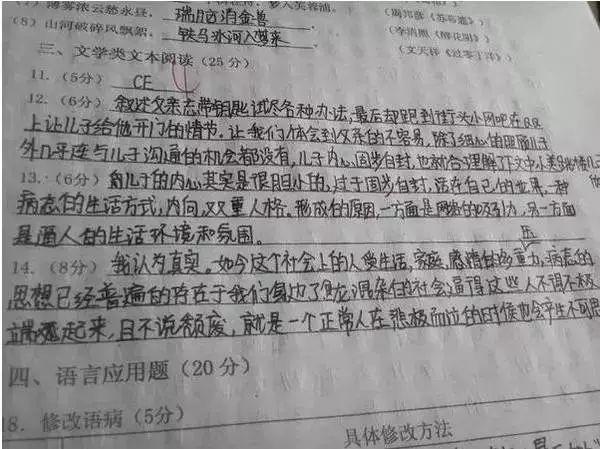 (7)薄雾浓云愁永昼, 瑞脑消金兽 (李清照《醉花阴》)
(8)山河破碎风飘絮, 铁马冰河入梦来 (文天祥《过零丁洋》)
三、文学类文本阅读(25分)
11.(5分) CE
12.(6分) 叙述父亲忘带钥匙试尽各种办法,最后却跑到街头小网吧在QQ
上让儿子给他开门的情节。让我们体会到父亲的不容易,除了细心的照顾儿子
外几乎连与儿子沟通的机会都没有,儿子内心固步自封,也就合理解了下文中
13.(6分) 儿子的内心其实是很胆小的,过于固步自封,活在自己的世界,一种
病态的生活方式,内向,双重人格。形成的原因,一方面是网络的吸引力,另一方面
是逼人的生活环境和氛围。
14.(8分) 我认为真实。如今这个社会上的人受生活,家庭,感情的多重压力,病态的
思想已经普遍的存在于我们身边了,混杂的社会逼得这些人不得不极
端起来,且不说颓废,就是一个正常人在悲极而泣的时候也会产生不可思
四、语言应用题(20分)
18.修改语病(5分)
具体修改方法